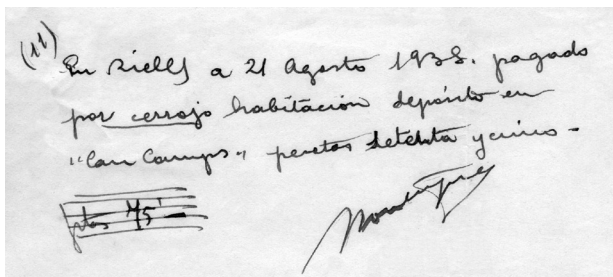 (11)
En Riells a 21 Agosto 1938. pagado
por cerrojo habitación depósito en
"Can Camps" pesetas setenta y cinco -
ptas 75'-